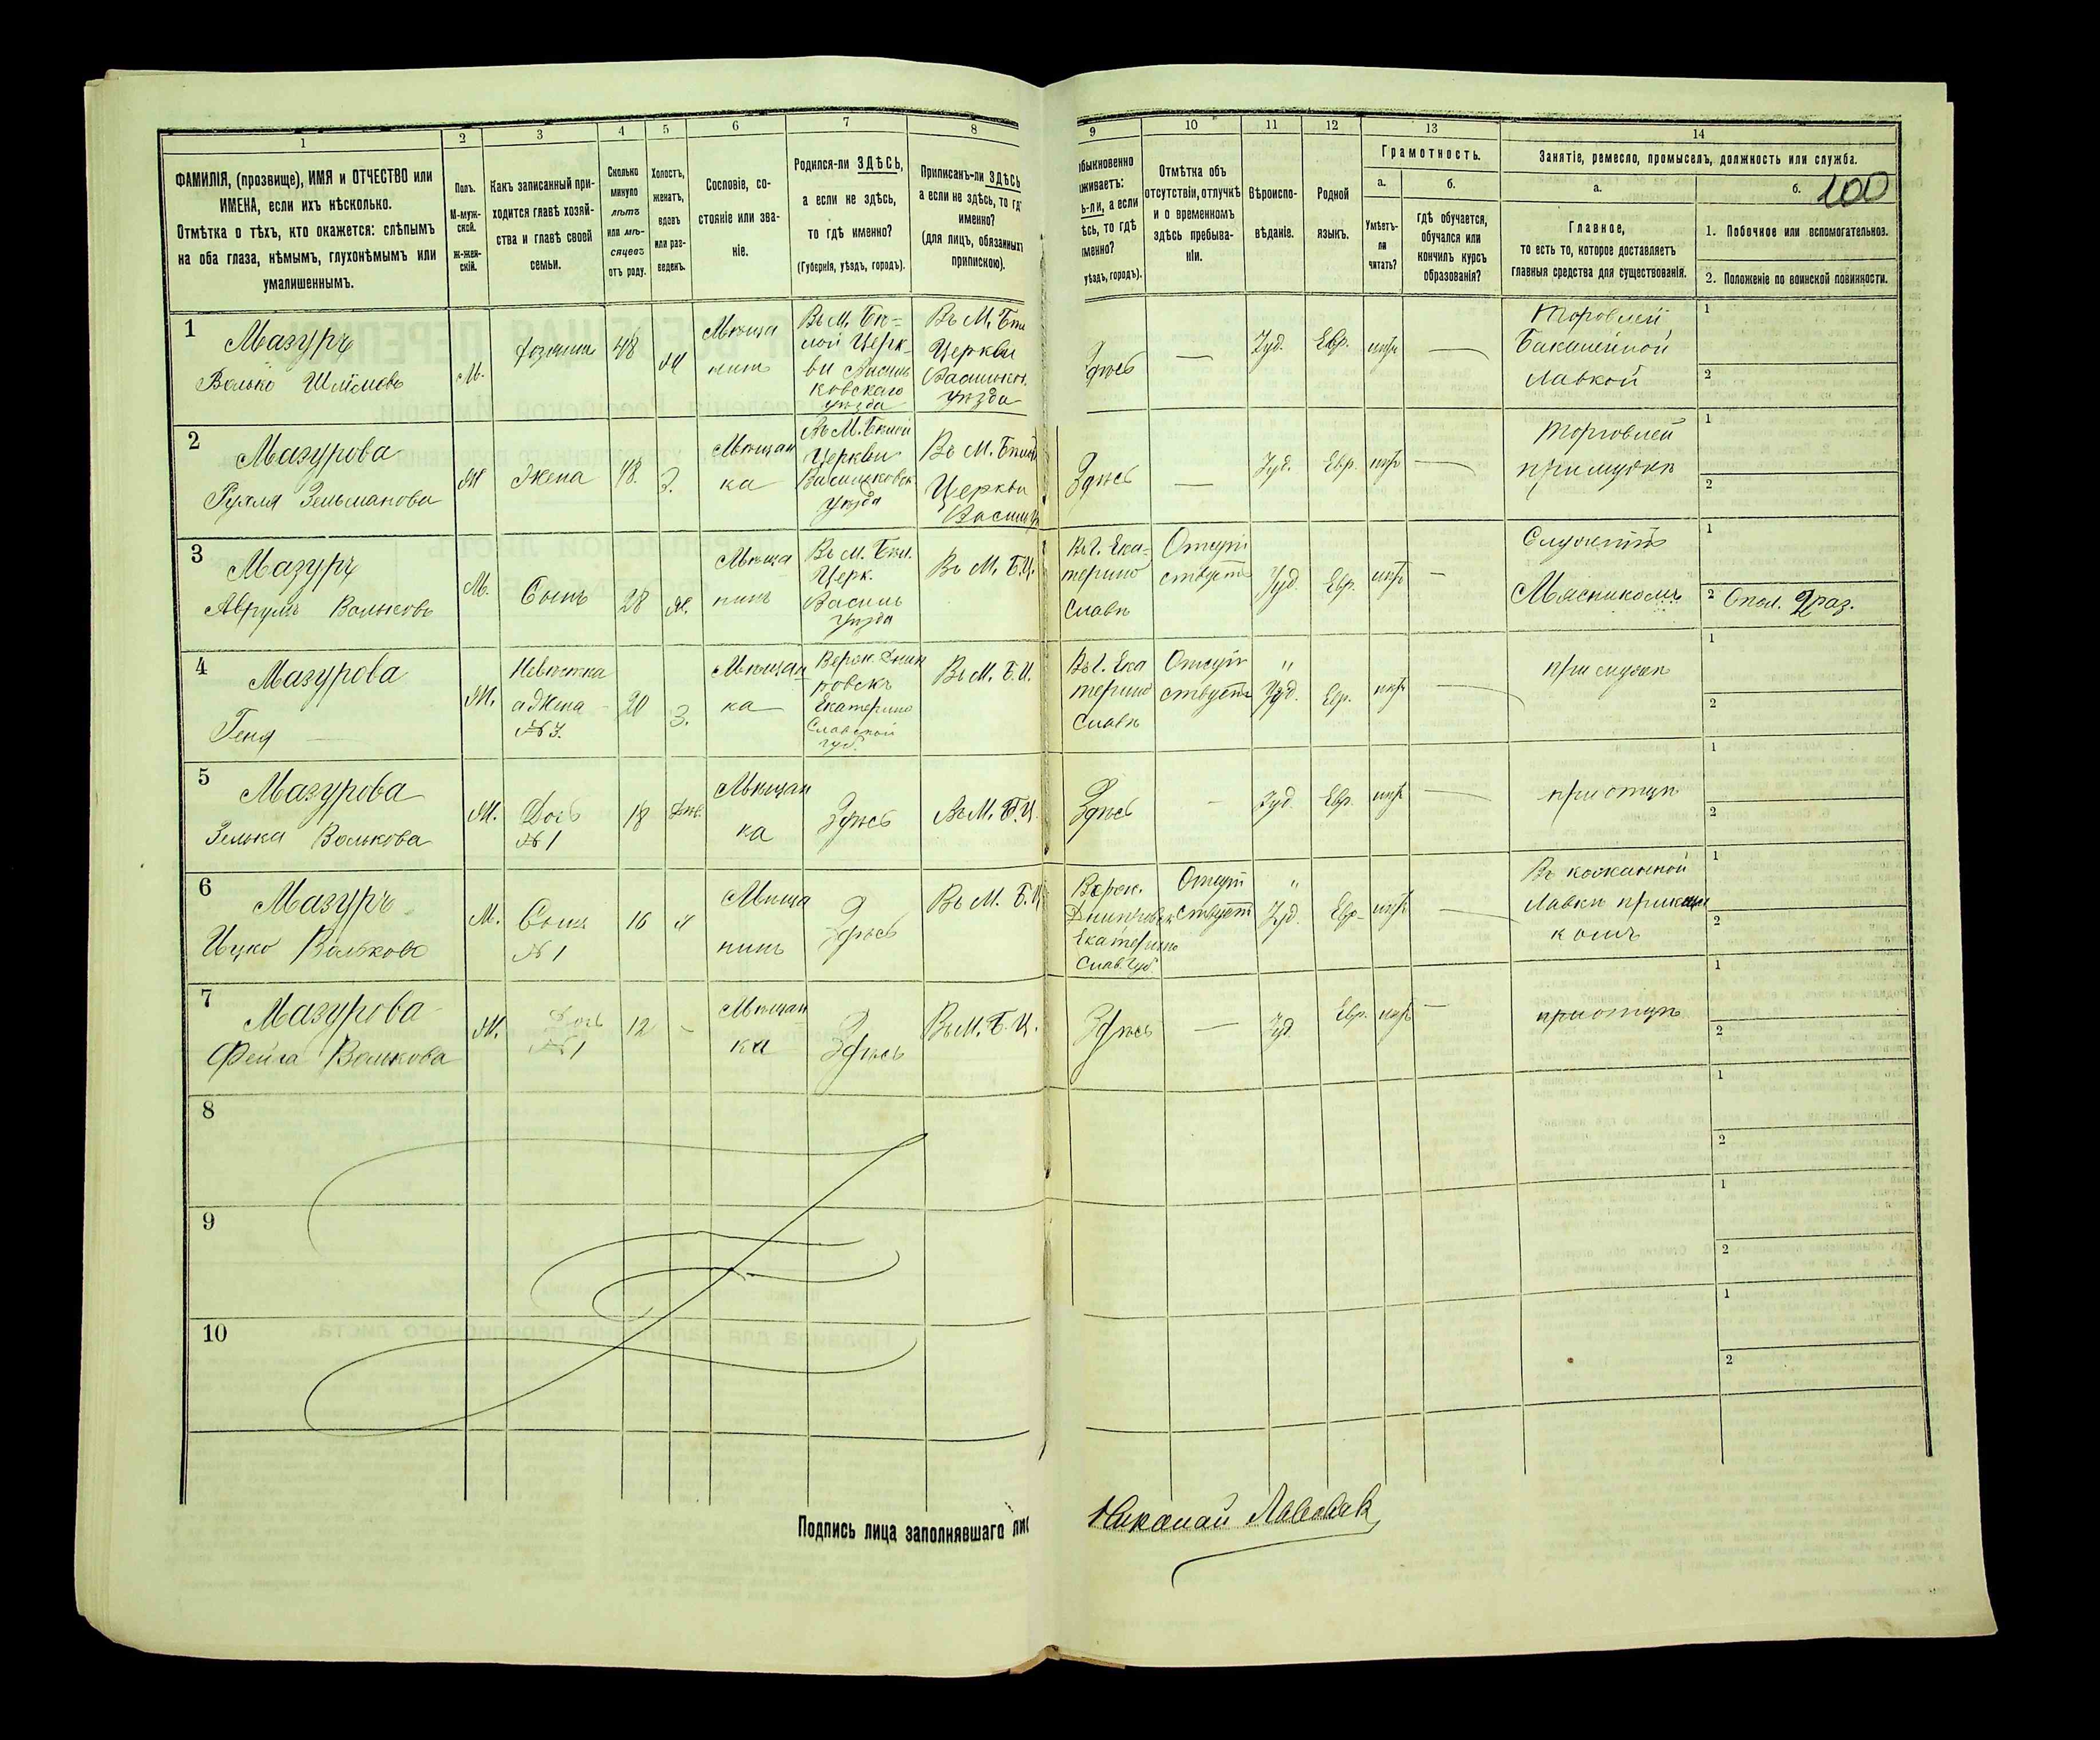 1
2
3
4
5
6
7
8
9
10
11
12
13
14
ФАМИЛІЯ, (прозвище), ИМЯ и ОТЧЕСТВО или
ИМЕНА, если ихъ нѣсколько.
Отмѣтка о тѣхъ, кто окажется: слѣпымъ
на оба глаза, нѣмымъ, глухонѣмымъ или
умалишеннымъ.
Полъ.
М-муж-
ской.
ж-жен-
скій.
Какъ записанный при-
ходится главѣ хозяй-
ства и главѣ своей
семьи.
Сколько
минуло
лѣтъ
или мѣ-
сяцевъ
отъ роду.
Холостъ,
женатъ,
вдовъ
или раз-
веденъ.
Сословіе, со-
стояніе или зва-
ніе.
Родился-ли ЗДѢСЬ,
а если не здѣсь,
то гдѣ именно?
(Губернія, уѣздъ, городъ).
Приписанъ-ли ЗДѢСЬ
а если не здѣсь, то гд
именно?
(для лицъ, обязанных
припискою).
обыкновенно
живаетъ:
ь-ли, а если
ѣсь, то гдѣ
менно?
уѣздъ, городъ).
Отмѣтка объ
отсутствіи, отлучкѣ
и о временномъ
здѣсь пребыва-
ніи.
Вѣроиспо-
вѣданіе.
Родной
языкъ.
Грамотность.
а.
б.
Умѣетъ-
ли
читать?
гдѣ обучается,
обучался или
кончилъ курсъ
образованія?
Занятіе, ремесло, промыселъ, должность или служба.
а.
б.
100
Главное,
то есть то, которое доставляетъ
главныя средства для существованія.
1. Побочное или вспомогательное.
2. Положеніе по воинской повинности.
1
Мазуръ
М.
48
Мѣща
нинъ
Въ М. Бѣ=
лой Церк-
ви
ковскаго
уѣзда
Въ М. Бѣл
Церкви
Васильков.
уѣзда
Здѣсь
—
Іуд.
Евр.
—
Бакалейной
лавкой
1
2
2
Мазурова
Рухля Зельманова
Жена
48.
З.
Мѣщан
ка
Въ М. Бѣлой
Церкви
Васильковск
уѣзда
Въ М. Бѣлой
Церкви
Здѣсь
—
Іуд.
Евр.
—
Торговлей
при мужѣ
1
2
3
Мазуръ
Аврумъ Вольковъ
М.
Сынъ
28
Мѣща
нинъ
Въ М. Бѣл.
Церк.
Василь
уѣзда
Въ М. Б.Ц.
Въ Г. Ека=
терино
славѣ
Отсут
ствуетъ
Іуд
Евр.
—
Служитъ
Мясникомъ
1
2 Опол. 2 раз.
4
Мазурова
Геня
Невѣстка
а Жена
№ 3.
20
З.
Мѣщан
ка
Екатерино
славской
губ.
Въ М. Б.Ц.
Въ Г. Ека
терино
славѣ
Отсут
ствуетъ
"
Іуд.
Евр.
—
при мужѣ
1
2
5
Мазурова
Зелька Волькова
Дочь
№ 1
18
Дѣв.
Мѣщан
ка
Здѣсь
Въ М. Б.Ц.
Здѣсь
—
Іуд.
Евр.
—
при отцѣ
1
2
6
Мазуръ
Ицко Вольковъ
М.
Сынъ
№ 1
16
Мѣща
нинъ
Здѣсь
Въ М. Б.Ц
Верхн.
Екатерино
Слав. Губ.
Отсут
ствуетъ
"
Іуд.
Евр.
—
Въ кожанной
лавкѣ
1
2
7
Мазурова
Фейга Волькова
Дочь
№ 1
12
-
Мѣщан
ка
Здѣсь
Въ М. Б.Ц.
Здѣсь
—
Іуд.
Евр.
—
при отцѣ
1
2
8
1
2
9
1
2
10
1
2
Подпись лица заполнявшаго лис
Николай